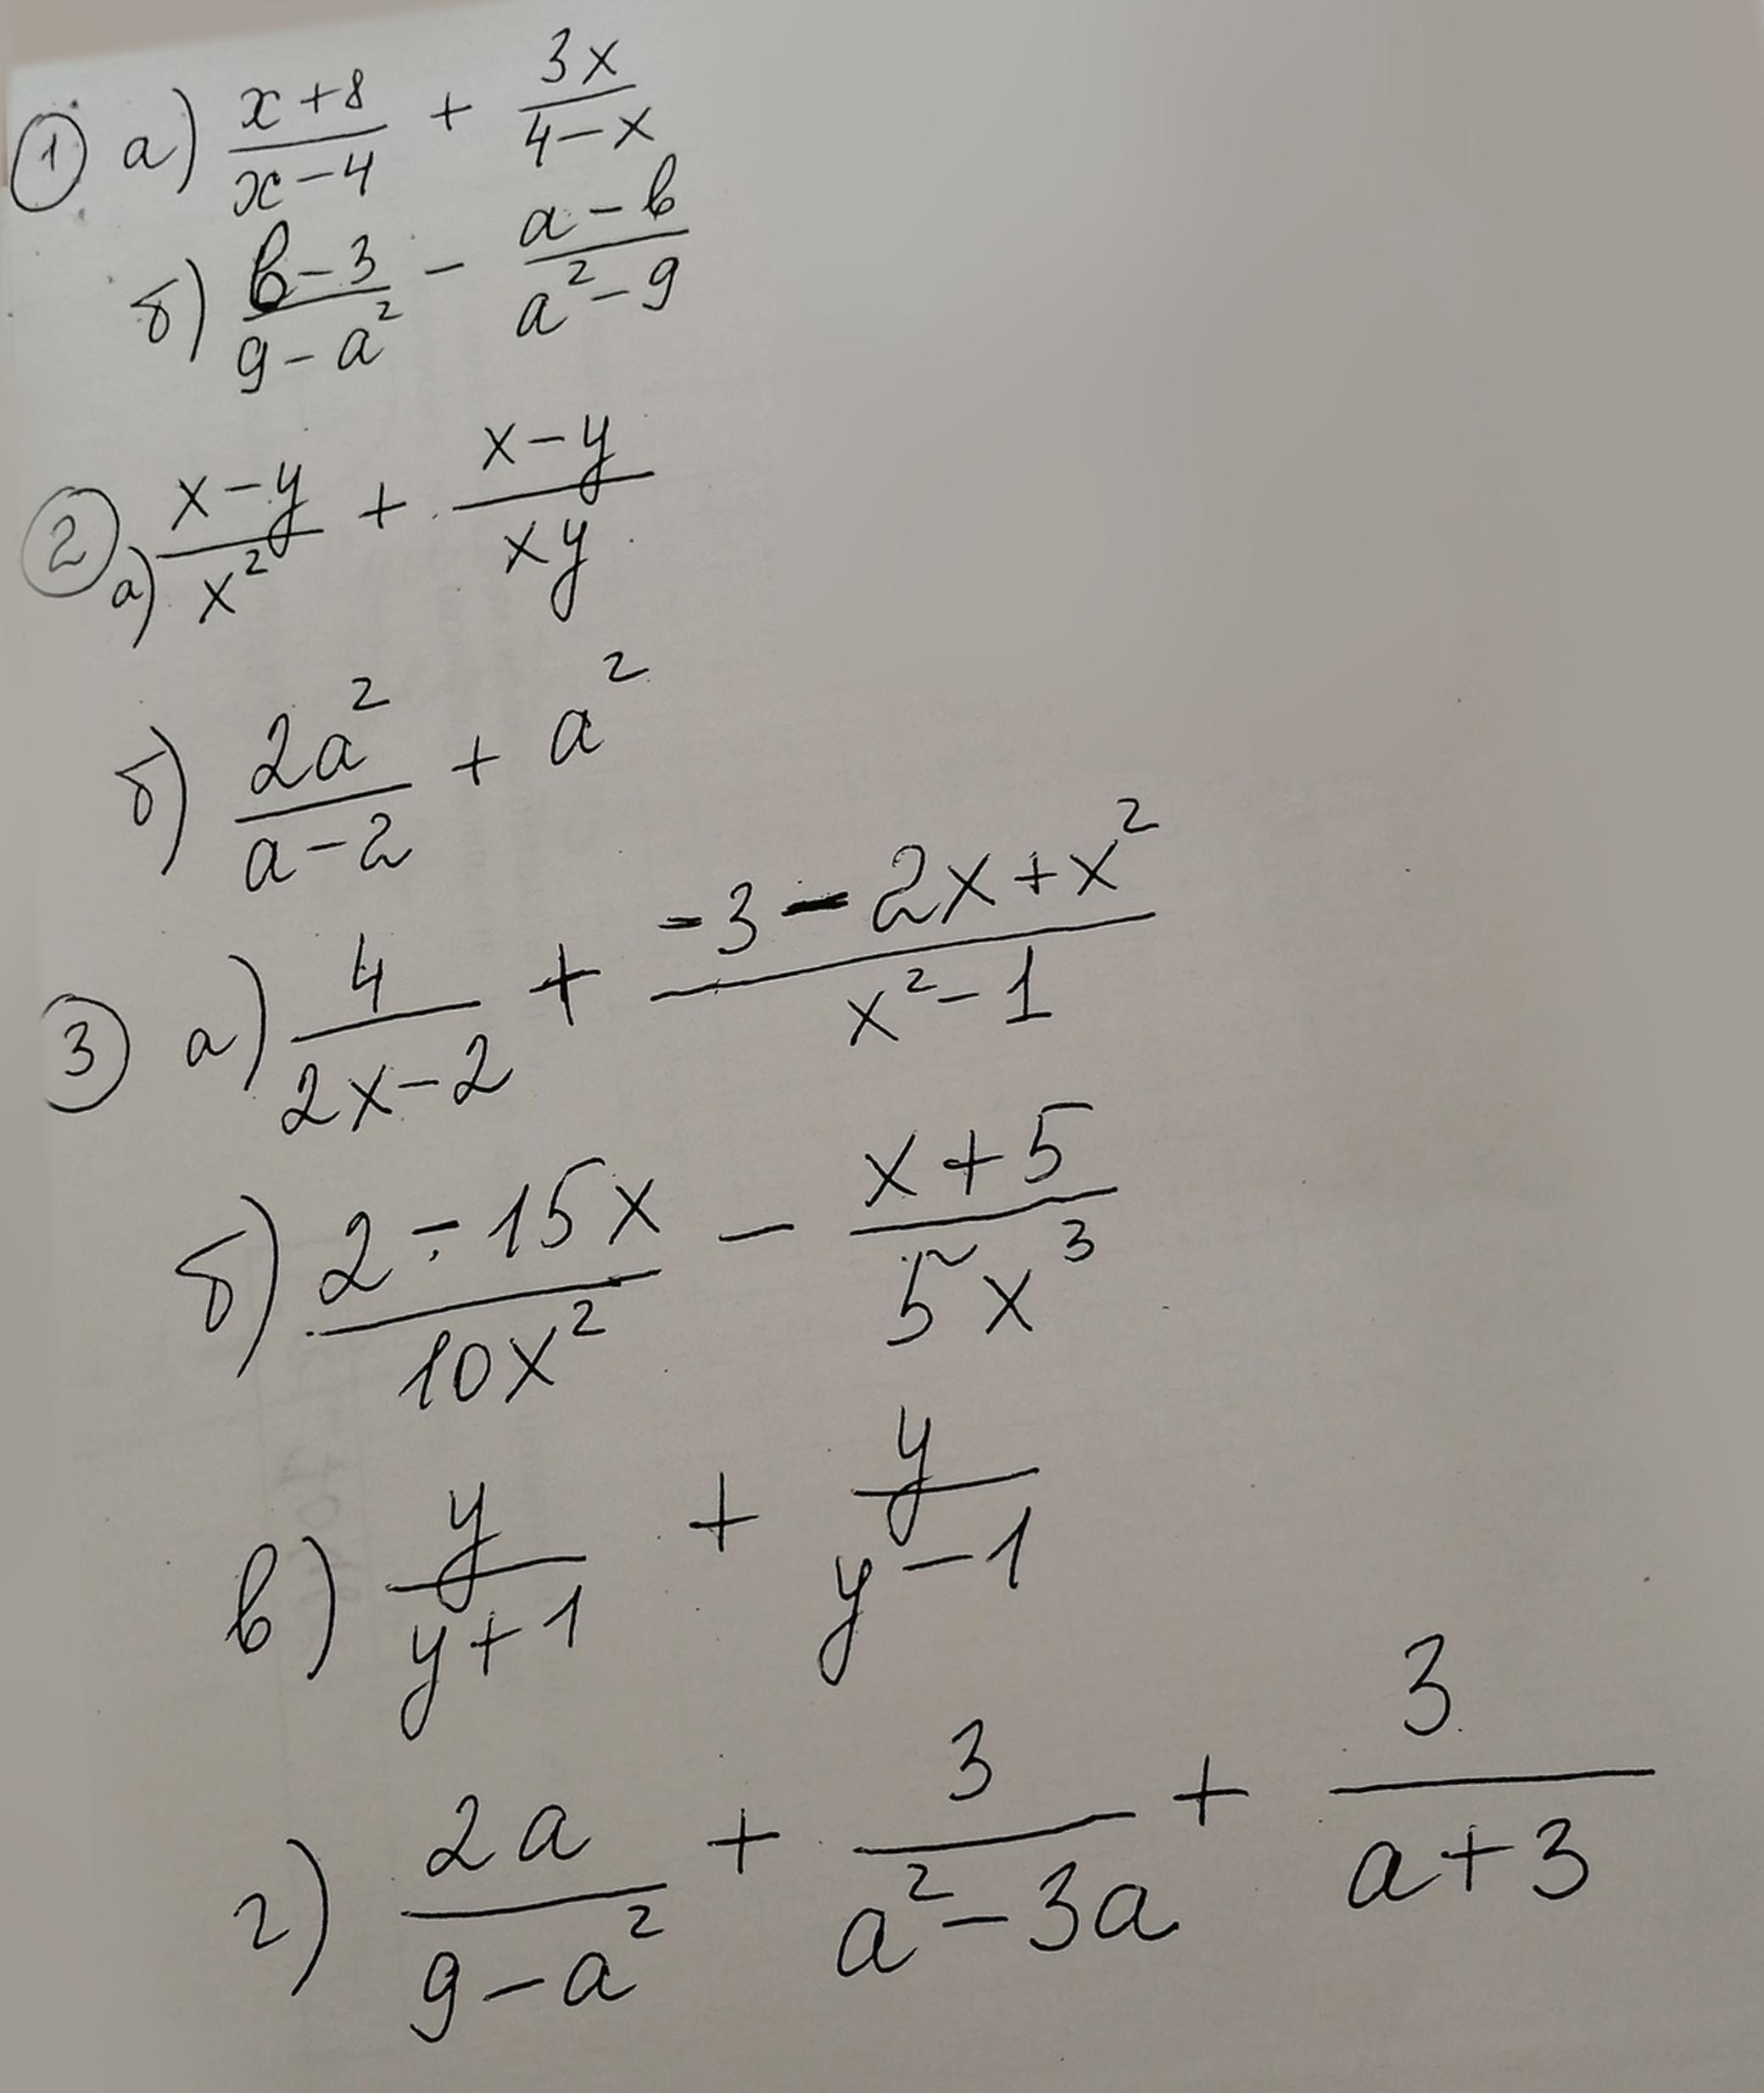 ① а) (x+8)/(x-4) + 3x/(4-x)
б) (b-3)/(9-a²) - (a-b)/(a²-9)
② а) (x-y)/x² + (x-y)/(xy)
б) 2a²/(a-2) + a²
③ а) 4/(2x-2) + (-3-2x+x²)/(x²-1)
б) (2÷15x)/(10x²) - (x+5)/(5x³)
в) y/(y+1) + y/(y-1)
г) 2a/(9-a²) + 3/(a²-3a) + 3/(a+3)